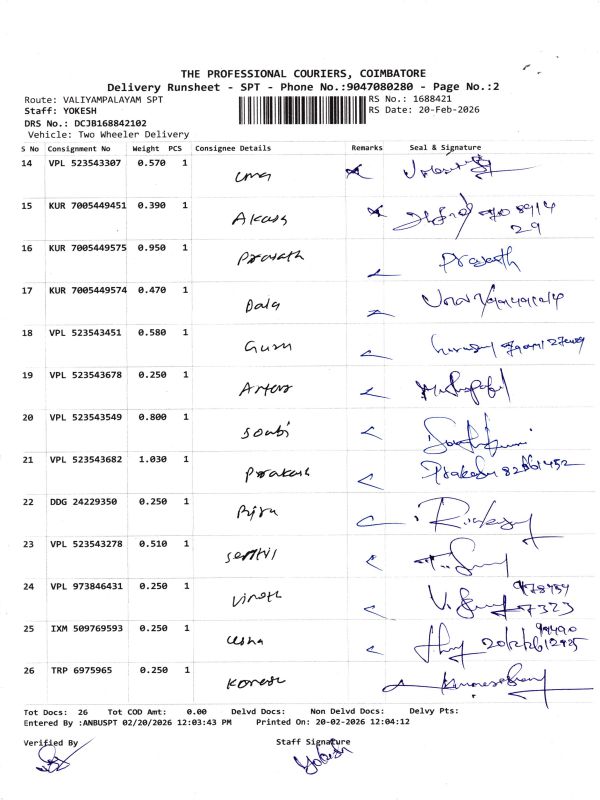 THE PROFESSIONAL COURIERS, COIMBATORE
Delivery Runsheet - SPT - Phone No.:9047080280 - Page No.:2
Route: VALIYAMPALAYAM SPT RS No.: 1688421
Staff: YOKESH RS Date: 20-Feb-2026
DRS No.: DCJB168842102
Vehicle: Two Wheeler Delivery
S No Consignment No Weight PCS Consignee Details Remarks Seal & Signature
14 VPL 523543307 0.570 1 uma
15 KUR 7005449451 0.390 1 Akash
16 KUR 7005449575 0.950 1 Prasath Prasanth
17 KUR 7005449574 0.470 1 Bala
18 VPL 523543451 0.580 1 Guru
19 VPL 523543678 0.250 1
20 VPL 523543549 0.800 1
21 VPL 523543682 1.030 1 Prakash Prakash
22 DDG 24229350 0.250 1
23 VPL 523543278 0.510 1 senthil
24 VPL 973846431 0.250 1 vinoth
25 IXM 509769593 0.250 1 usha
26 TRP 6975965 0.250 1
Tot Docs: 26 Tot COD Amt: 0.00 Delvd Docs: Non Delvd Docs: Delvy Pts:
Entered By :ANBUSPT 02/20/2026 12:03:43 PM Printed On: 20-02-2026 12:04:12
Verified By Staff Signature
Yokesh